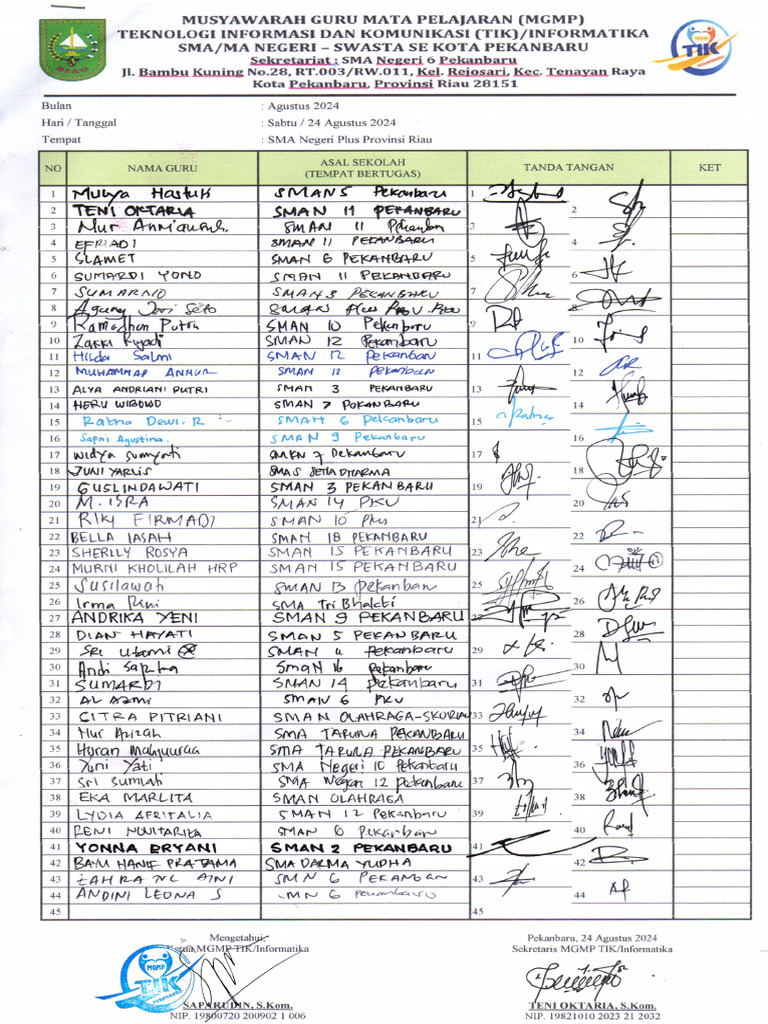 MUSYAWARAH GURU MATA PELAJARAN (MGMP)
TEKNOLOGI INFORMASI DAN KOMUNIKASI (TIK)/INFORMATIKA
SMA/MA NEGERI – SWASTA SE KOTA PEKANBARU
Sekretariat : SMA Negeri 6 Pekanbaru
Jl. Bambu Kuning No.28, RT.003/RW.011, Kel. Rejosari, Kec. Tenayan Raya
Kota Pekanbaru, Provinsi Riau 28151
RIAU
MGMP
TIK
Bulan : Agustus 2024
Hari / Tanggal : Sabtu / 24 Agustus 2024
Tempat : SMA Negeri Plus Provinsi Riau
NO NAMA GURU ASAL SEKOLAH (TEMPAT BERTUGAS) TANDA TANGAN KET
1 Mulya Hastuti SMAN 5 Pekanbaru 1
2 TENI OKTARIA SMAN 11 PEKANBARU 2
3 Nur SMAN 11 Pekanbaru 3
4 EFRIADI SMAN 11 PEKANBARU 4
5 SLAMET SMAN 6 PEKANBARU 5
6 SUMARDI YONO SMAN 11 PEKANBARU 6
7 SUMARNO SMAN 3 PEKANBARU 7
8 Agung Seto SMAN Plus 8
9 Ramadhan Putra SMAN 10 Pekanbaru 9
10 Zakki Riyadi SMAN 12 Pekanbaru 10
11 Hilda Salmi SMAN 12 Pekanbaru 11
12 MUHAMMAD ANHUR SMAN 12 Pekanbaru 12
13 ALYA ANDRIANI PUTRI SMAN 3 PEKANBARU 13
14 HERU WIBOWO SMAN 7 PEKANBARU 14
15 Ratna Dewi.R SMAN 6 Pekanbaru 15
16 Safni Agustina. SMAN 9 Pekanbaru 16
17 Widya Sumyati SMKN 7 Pekanbaru 17
18 JUNI YARLIS SMAS SETIA DHARMA 18
19 GUSLINDAWATI SMAN 3 PEKANBARU 19
20 M. ISRA SMAN 14 PKU 20
21 RIKY FIRMADI SMAN 10 Pku 21
22 BELLA IASAH SMAN 18 PEKANBARU 22
23 SHERLLY ROSYA SMAN 15 PEKANBARU 23
24 MURNI KHOLILAH HRP SMAN 15 PEKANBARU 24
25 Susilawati SMAN 13 Pekanbaru 25
26 Irma Rini SMA Tri Bhakti 26
27 ANDRIKA YENI SMAN 9 PEKANBARU 27
28 DIAN HAYATI SMAN 5 PEKANBARU 28
29 Sri Utami SMAN Pekanbaru 29
30 Andi Saputra SMAN 16 Pekanbaru 30
31 SUMARDI SMAN 14 Pekanbaru 31
32 AL AZMI SMAN 6 PKU 32
33 CITRA PITRIANI SMAN OLAHRAGA-SKORIAU 33
34 Nur Azizah SMA TARUNA PEKANBARU 34
35 SMA TARUNA PEKANBARU 35
36 Yuni Yati SMA Negeri 10 Pekanbaru 36
37 Sri Sumiati SMA Negeri 12 Pekanbaru 37
38 EKA MARLITA SMAN OLAHRAGA 38
39 LYDIA AFRITALIA SMAN 12 Pekanbaru 39
40 RENI NOVITARIKA SMAN 6 Pekanbaru 40
41 YONNA BRYANI SMAN 2 PEKANBARU 41
42 BAYU HANIF PRATAMA SMA DARMA YUDHA 42
43 ZAHRA NL AINI SMN 6 PEKANBAN 43
44 ANDINI LEONA S SMN 6 44
45 45
Mengetahui, Pekanbaru, 24 Agustus 2024
MGMP TIK/Informatika Sekretaris MGMP TIK/Informatika
MGMP
TIK
PEKANBARU
SAPARUDIN, S.Kom. TENI OKTARIA, S.Kom.
NIP. 19800720 200902 1 006 NIP. 19821010 2023 21 2032